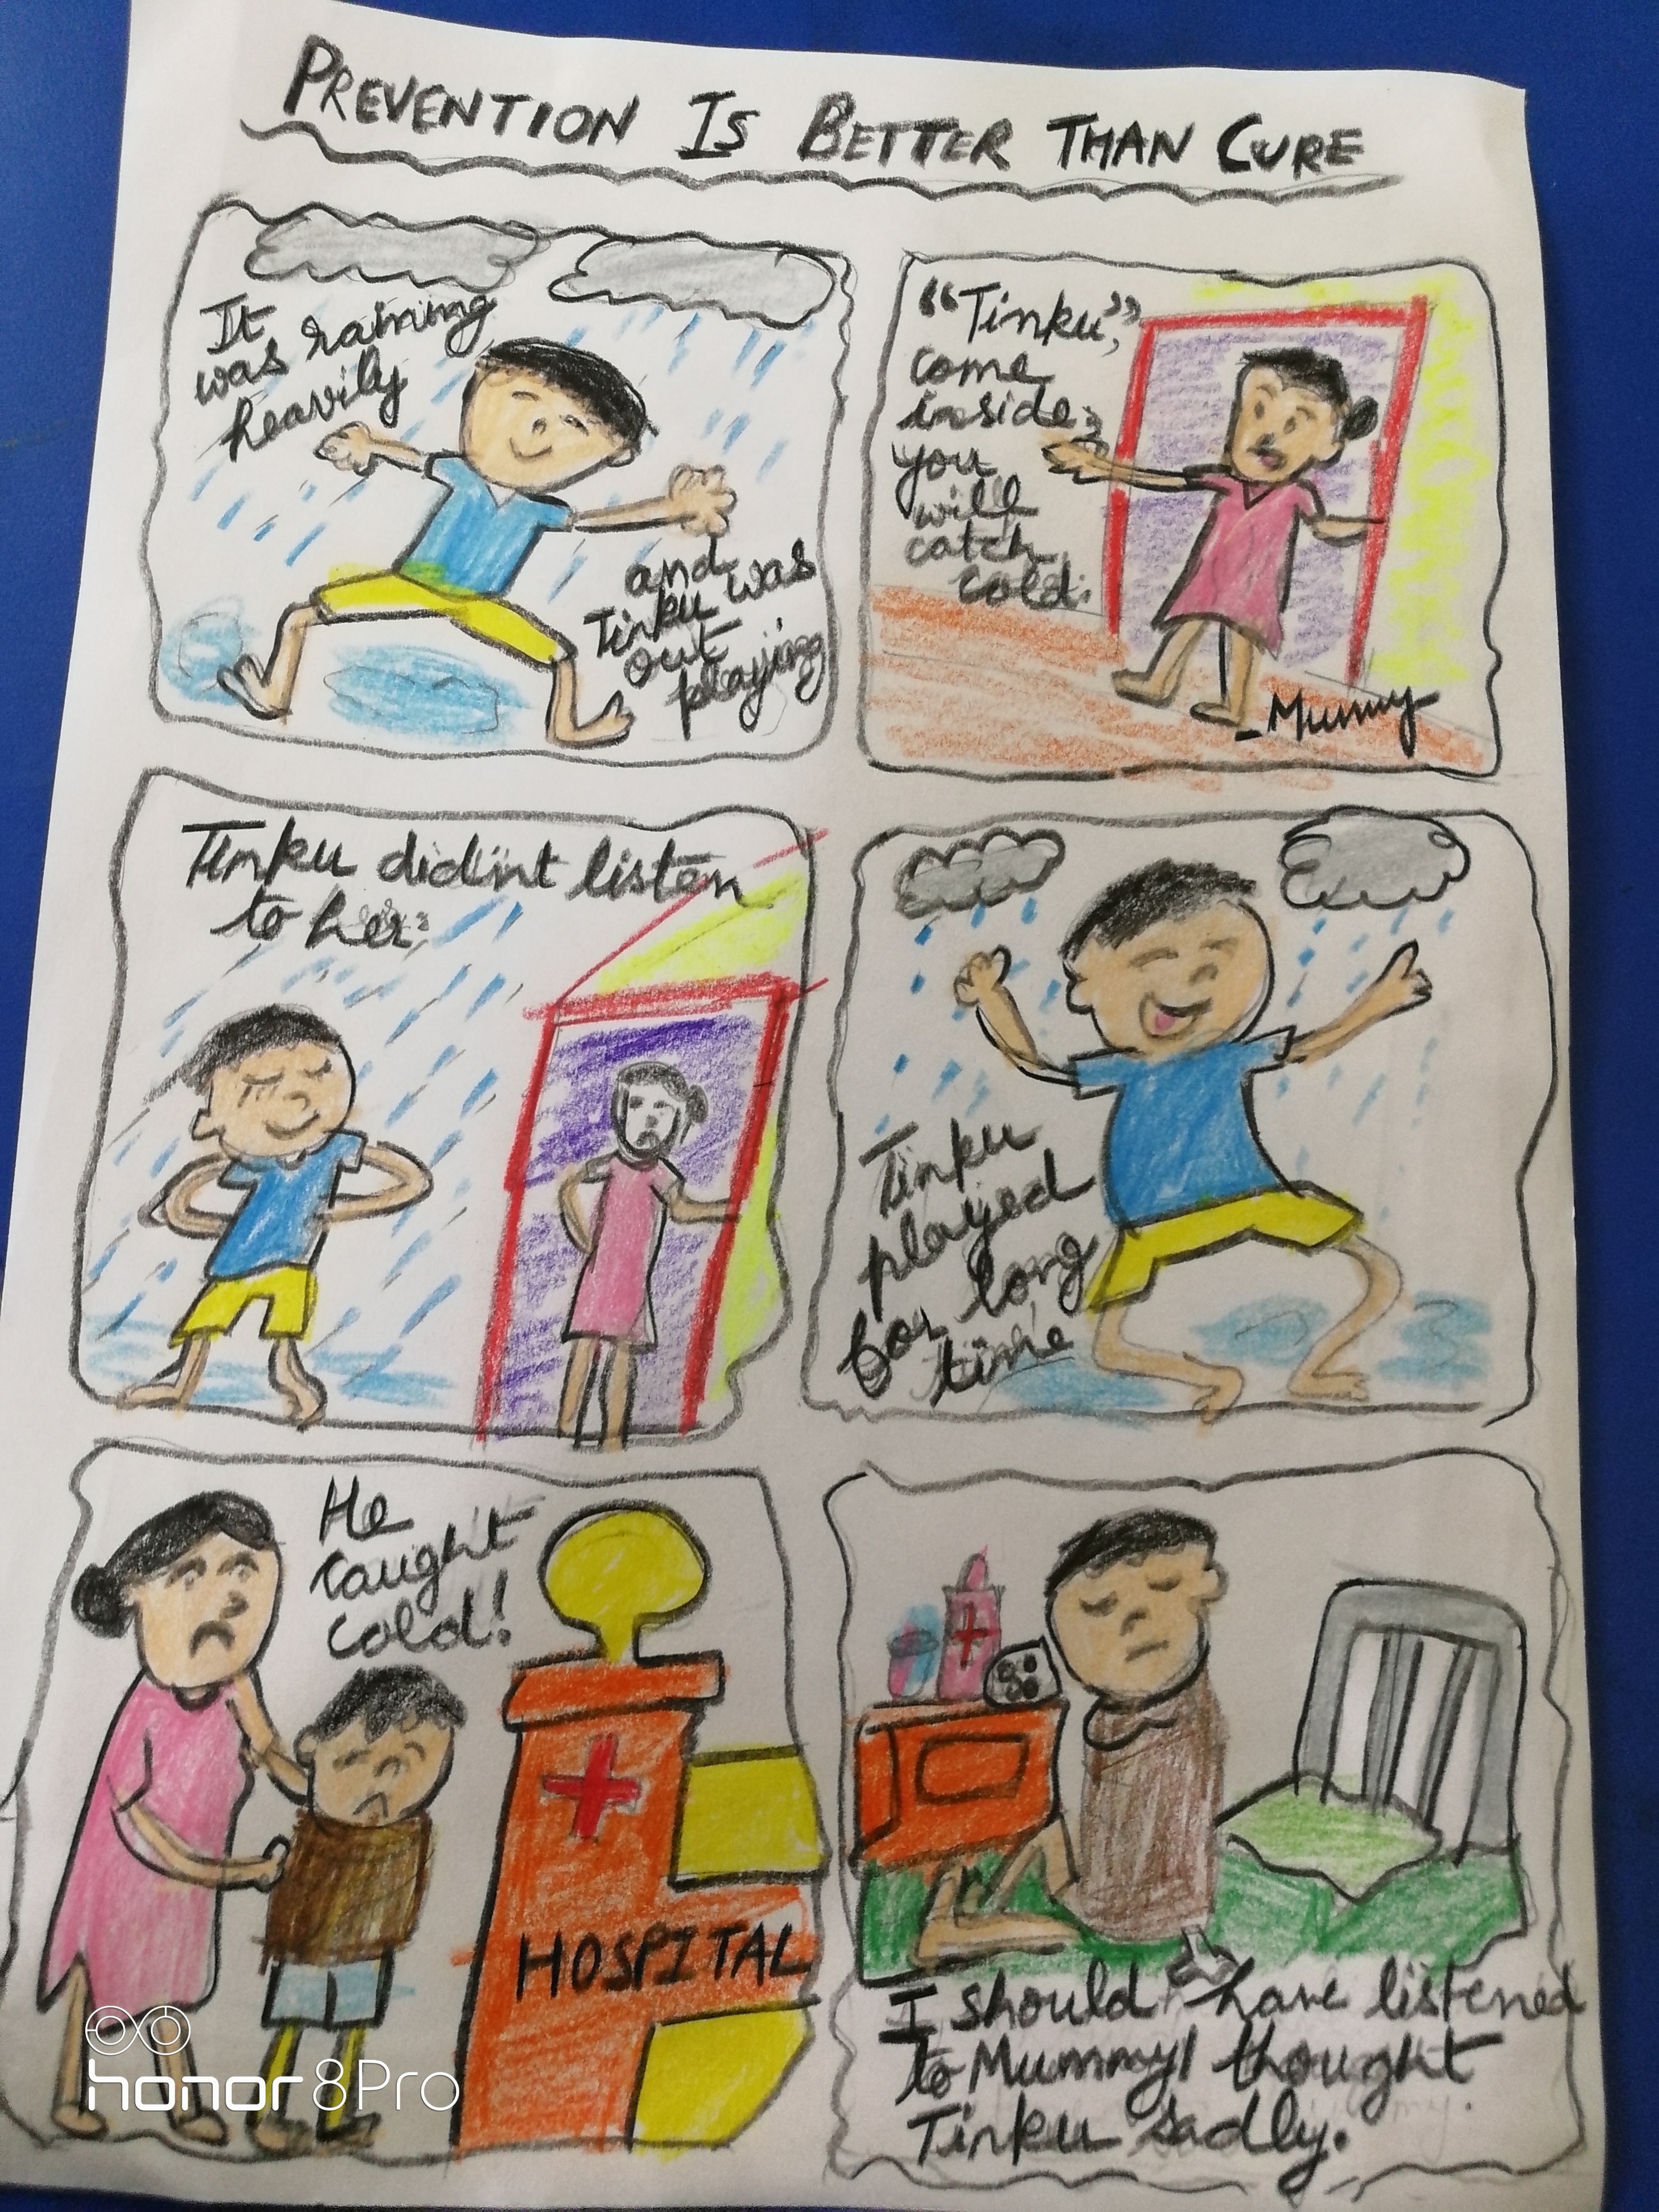 PREVENTION IS BETTER THAN CURE
It
was raining
heavily
and
Tinku was
out
playing
"Tinku,"
come
inside,
you
will
catch
cold.
- Mummy
Tinku did'nt listen
to her.
Tinku
played
for long
time
He
caught
cold!
HOSPITAL
I should have listened
to Mummy! thought
Tinku sadly.
honor 8Pro